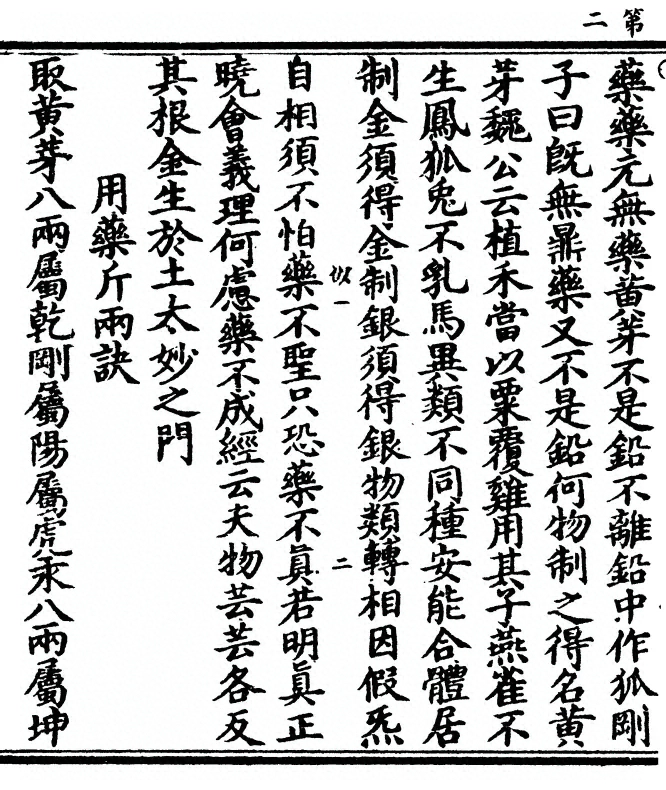 第二
藥藥元無藥黃芽不是鉛不離鉛中作狐剛
子曰旣無鼎藥又不是鉛何物制之得名黃
芽魏公云植禾當以粟覆雞用其子燕雀不
生鳳狐兔不乳馬異類不同種安能合體居
制金須得金制銀須得銀物類轉相因假炁
似一
二
自相須不怕藥不聖只恐藥不眞若明眞正
曉會義理何慮藥不成經云夫物芸芸各反
其根金生於土太妙之門
用藥斤兩訣
取黃芽八兩屬乾剛屬陽屬虎汞八兩屬坤